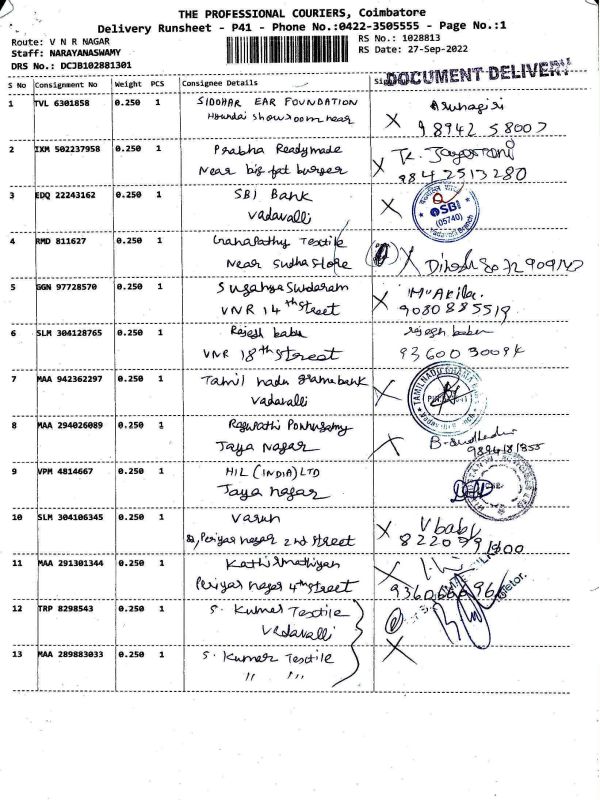 THE PROFESSIONAL COURIERS, Coimbatore
Delivery Runsheet - P41 - Phone No.:0422-3505555 - Page No.:1
Route: V N R NAGAR
RS No.: 1028813
Staff: NARAYANASWAMY
RS Date: 27-Sep-2022
DRS No.: DCJB102881301
DOCUMENT DELIVERY
S No Consignment No Weight PCS Consignee Details
1 TVL 6301858 0.250 1 SIDDHAR EAR FOUNDATION
Hyundai showroom near
Arunagiri
98942 58007
2 IXM 502237958 0.250 1 Prabha Readymade
Near big fat burger
9842513280
3 EDQ 22243162 0.250 1 SBI Bank
Vadavalli
SBI
(05740)
Vadavalli Branch
4 RMD 811627 0.250 1 Ganapathy Textile
Near Sudha Store
5 GGN 97728570 0.250 1 Suganya Sundaram
VNR 14th street
M. Akila.
9080885519
6 SLM 304128765 0.250 1 Rajesh babu
VNR 18th street
rajesh babu
9360030094
7 MAA 942362297 0.250 1 Tamil nadu grama bank
Vadavalli
TAMILNADU GRAMA
8 MAA 294026089 0.250 1 Ragupathi Ponnusamy
Jaya Nagar
9894181855
9 VPM 4814667 0.250 1 HIL (INDIA) LTD
Jaya nagar
10 SLM 304106345 0.250 1 Varun
2, Periyar nagar 2nd street
V babu
11 MAA 291301344 0.250 1 Kathirmathiyan
Periyar nagar 4th street
12 TRP 8298543 0.250 1 S. Kumar Textile
Vadavalli
13 MAA 289883033 0.250 1 S. Kumar Textile
,, ,,